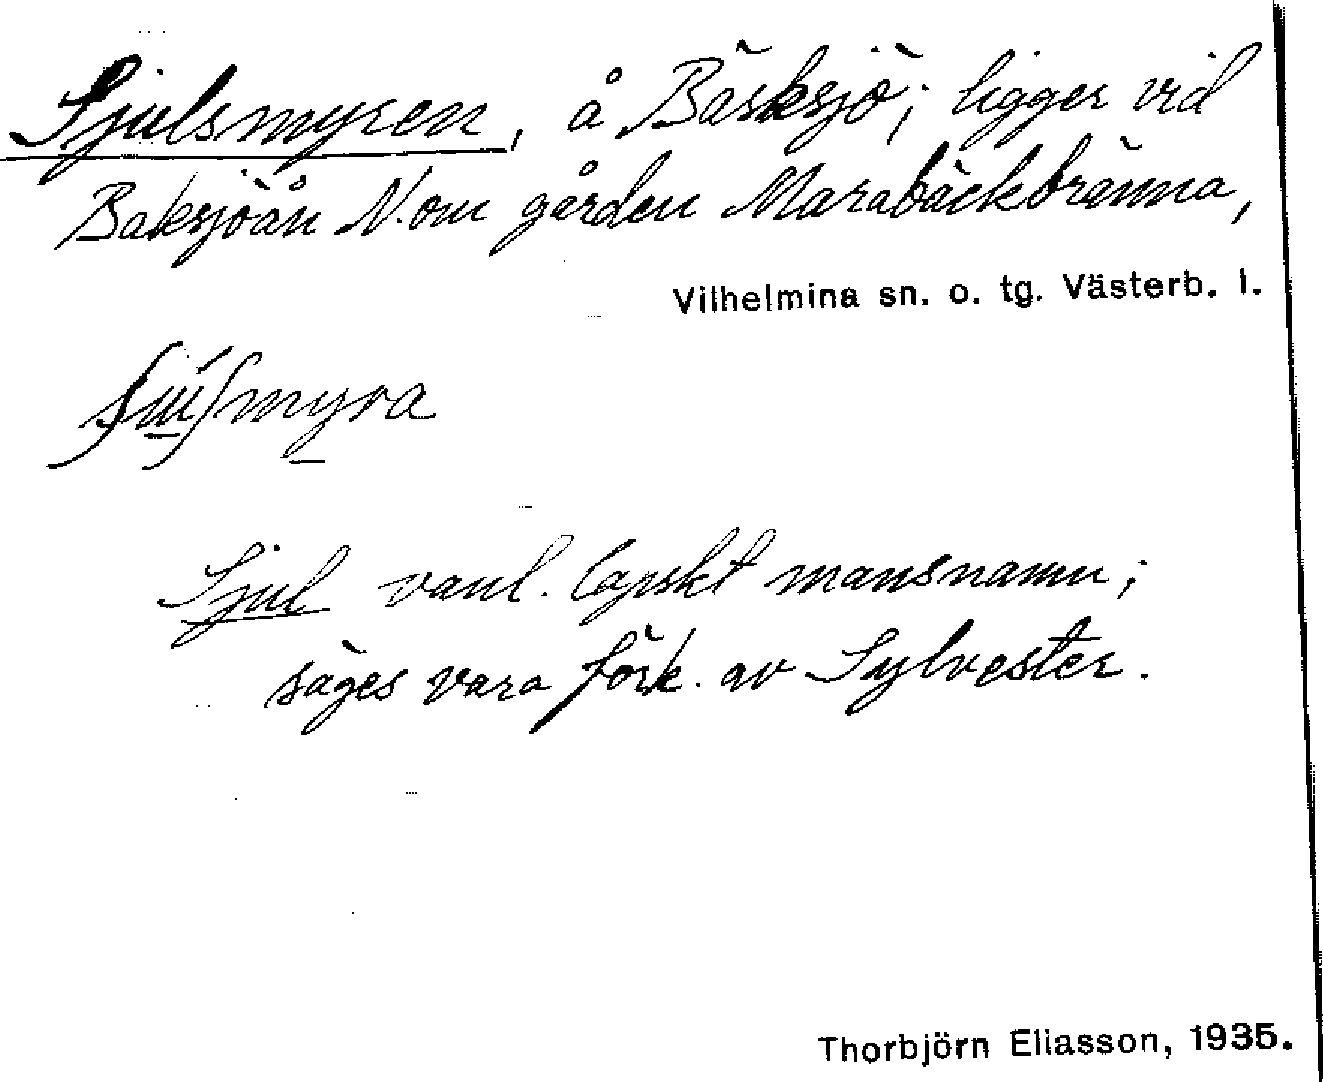 Sjulsmyren, å Bäsksjö; ligger vid
Baksjöån N. om gården Marabäckbränna,
Vilhelmina sn. o. tg. Västerb. l.
Sjul vanl. lapskt mansnamn;
säges vara förk. av Sylvester.
Thorbjörn Eliasson, 1935.